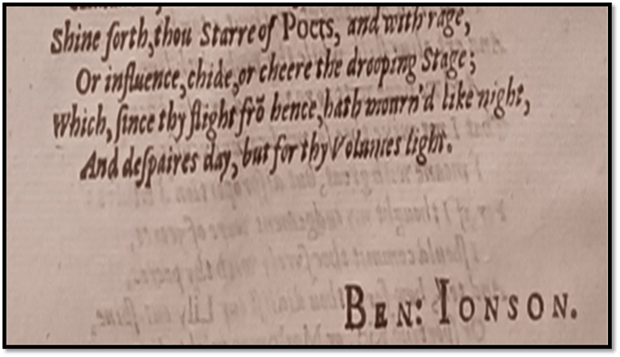 Shine forth, thou Starre of Poets, and with rage,
Or influence, chide, or cheere the drooping Stage;
Which, since thy flight frō hence, hath mourn'd like night,
And despaires day, but for thy Volumes light.
BEN: IONSON.